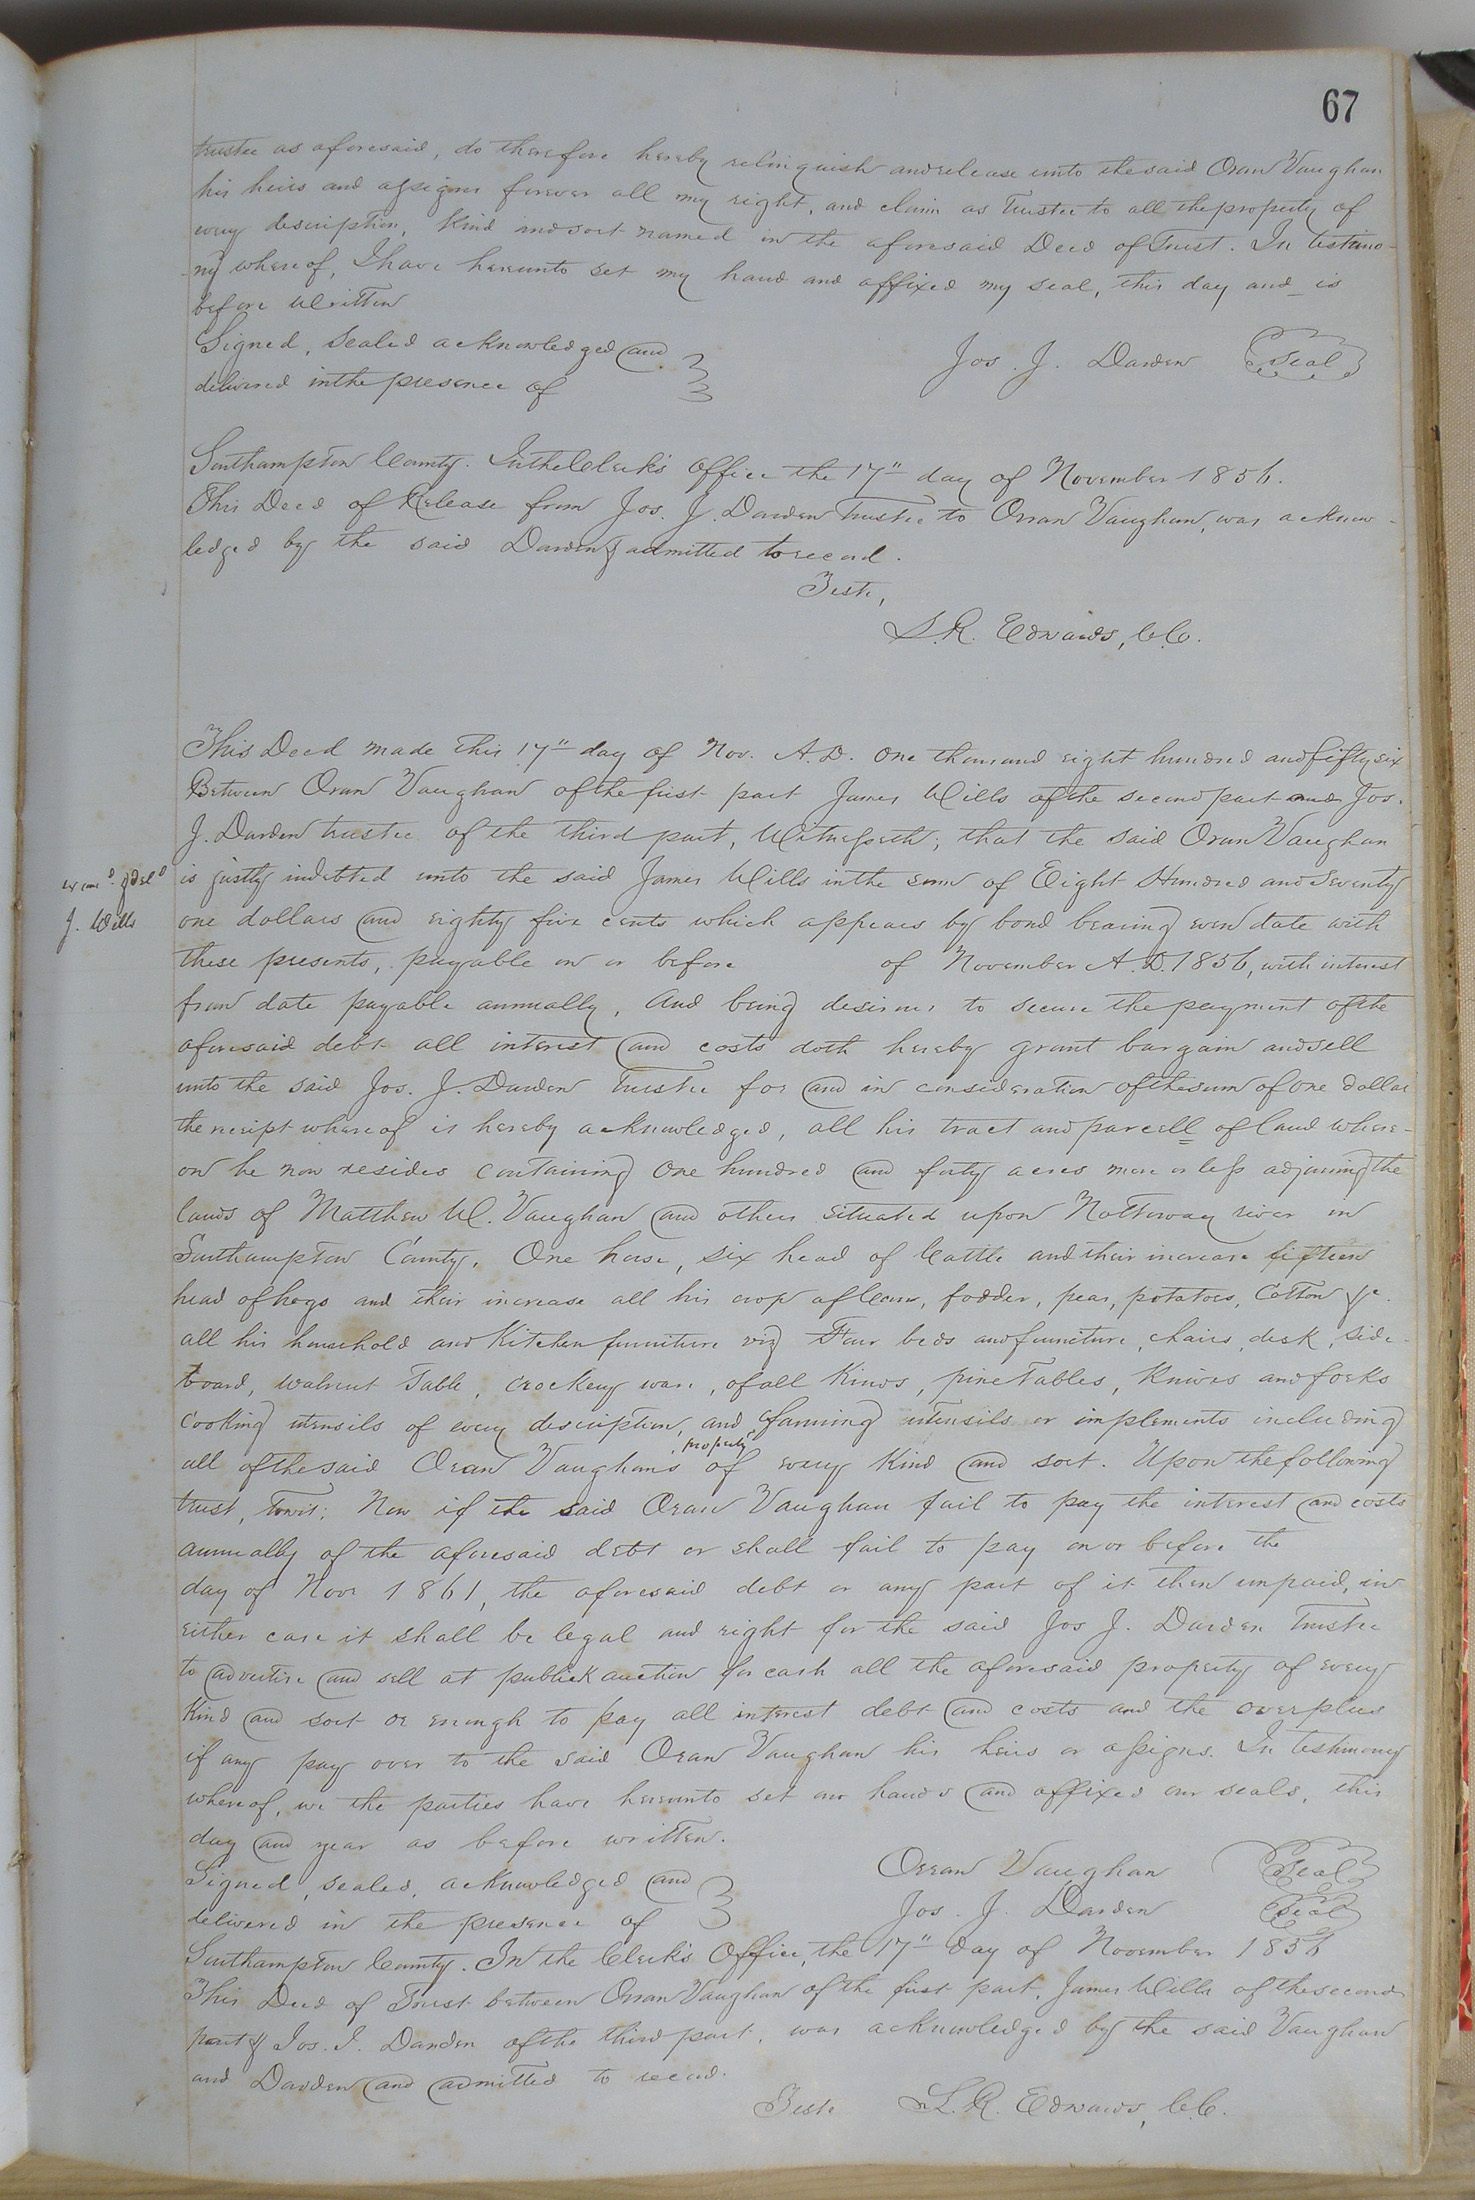 67
trustee as aforesaid, do therefore hereby relinquish and release unto the said Oran Vaughan
his heirs and assigns forever all my right, and claim as Trustee to all the property of
every description, Kind and sort named in the aforesaid Deed of Trust. In testimo-
ny whereof, I have hereunto set my hand and affixed my seal, this day and is
before written
Signed, sealed acknowledged and
delivered in the presence of
Jos. J. Darden Seal
Southampton County. In the Clerk's Office the 17" day of November 1856.
This Deed of Release from Jos. J. Darden Trustee to Orran Vaughan, was acknow-
ledged by the said Darden & admitted to record.
Teste,
L. R. Edwards, C.C.
This Deed made this 17" day of Nov. A.D. One thousand eight hundred and fifty six
Between Oran Vaughan of the first part James Wills of the second part and Jos.
J. Darden trustee of the third part, Witnesseth; that the said Oran Vaughan
is justly indebted unto the said James Wills in the sum of Eight Hundred and Seventy
J. Wills
one dollars and eighty five cents which appears by bond bearing even date with
these presents, payable on or before of November A.D. 1856, with interest
from date payable annually, And being desirous to secure the payment of the
aforesaid debt all interest and costs doth hereby grant bargain and sell
unto the said Jos. J. Darden Trustee for and in consideration of the sum of one dollar
the receipt whereof is hereby acknowledged, all his tract and parcell of land where-
on he now resides containing One hundred and forty acres more or less adjoining the
lands of Matthew W. Vaughan and others situated upon Nottoway river in
Southampton County, One horse, six head of Cattle and their increase fifteen
head of hogs and their increase all his crop of Corn, fodder, peas, potatoes, Cotton &c.
all his household and Kitchen furniture viz Four beds and furniture, chairs, desk, side-
board, walnut Table, crockery ware, of all Kinds, pine Tables, Knives and forks
Cooking utensils of every description, and farming utensils or implements including
all of the said Oran Vaughans property of every Kind and sort. Upon the following
trust, Towit: Now if the said Oran Vaughan fail to pay the interest and costs
annually of the aforesaid debt or shall fail to pay on or before the
day of Nov. 1861, the aforesaid debt or any part of it then unpaid, in
either case it shall be legal and right for the said Jos J. Darden Trustee
to advertise and sell at publick auction for cash all the aforesaid property of every
Kind and sort or enough to pay all interest debt and costs and the overplus
if any pay over to the said Oran Vaughan his heirs or assigns. In testimony
whereof, we the parties have hereunto set our hands and affixed our seals, this
day and year as before written.
Signed, sealed, acknowledged and
delivered in the presence of
Orran Vaughan Seal
Jos. J. Darden Seal
Southampton County. In the Clerk's Office, the 17" day of November 1856
This Deed of Trust between Orran Vaughan of the first part, James Wills of the second
part & Jos. J. Darden of the third part, was acknowledged by the said Vaughan
and Darden and admitted to record.
Teste L. R. Edwards, C.C.